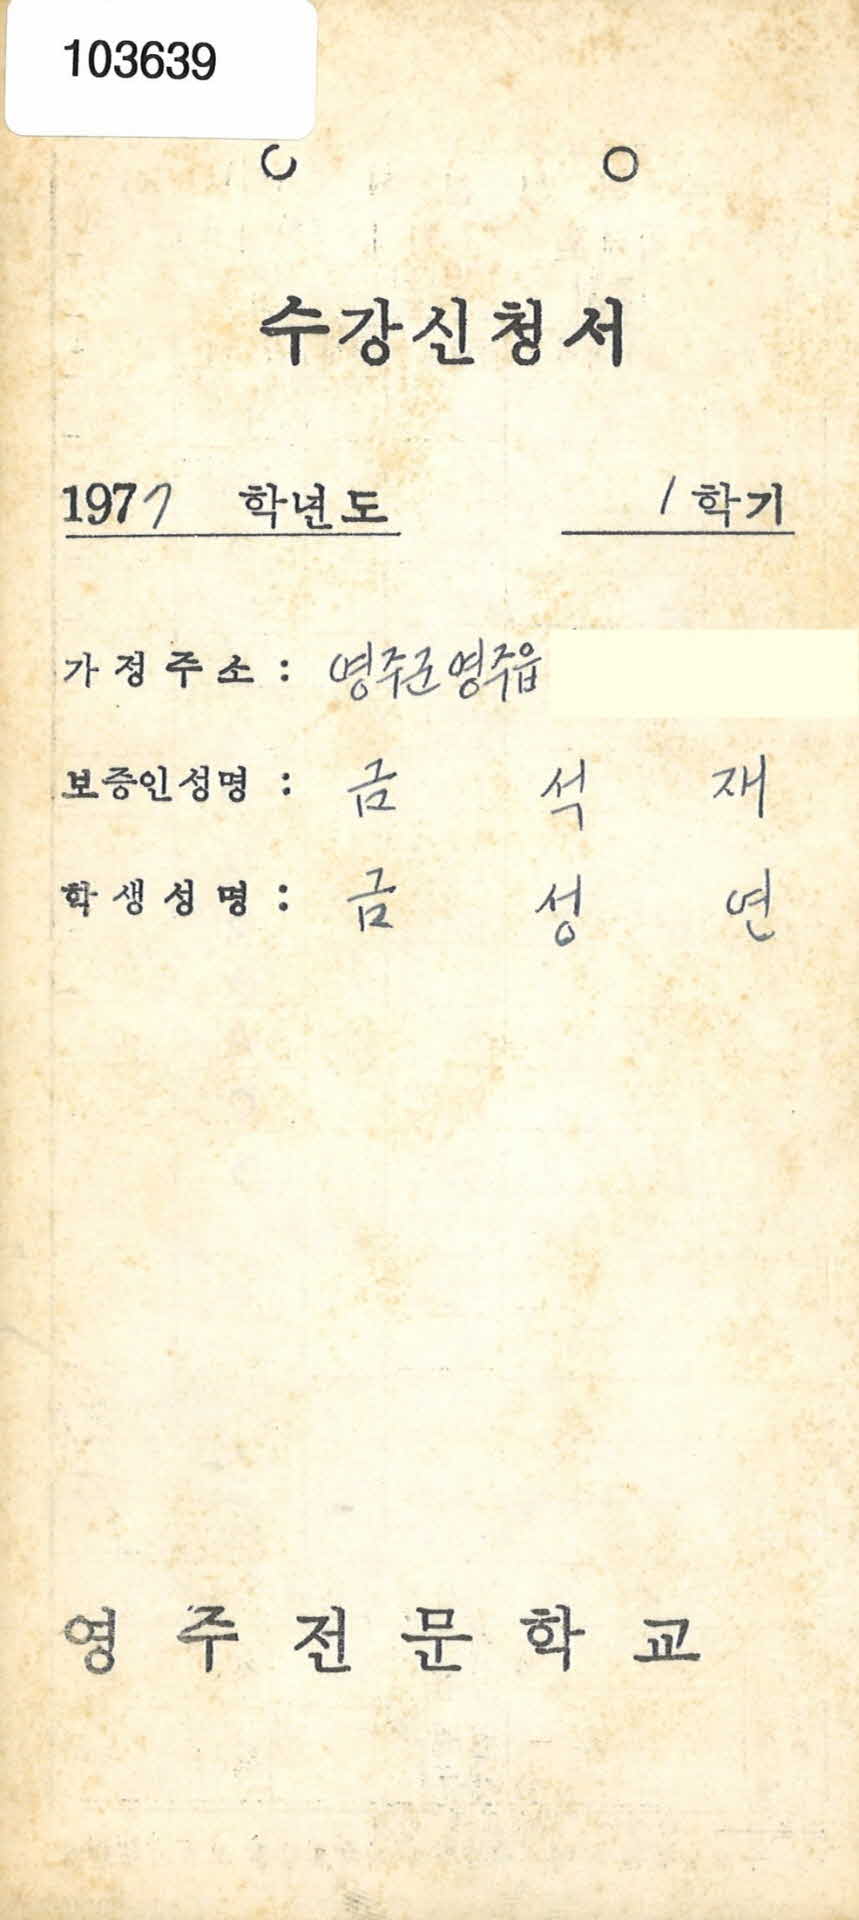 103639
수강신청서
1977 학년도 1 학기
가정주소 : 영주군 영주읍
보증인성명 : 금 석 재
학생성명 : 금 성 연
영주전문학교